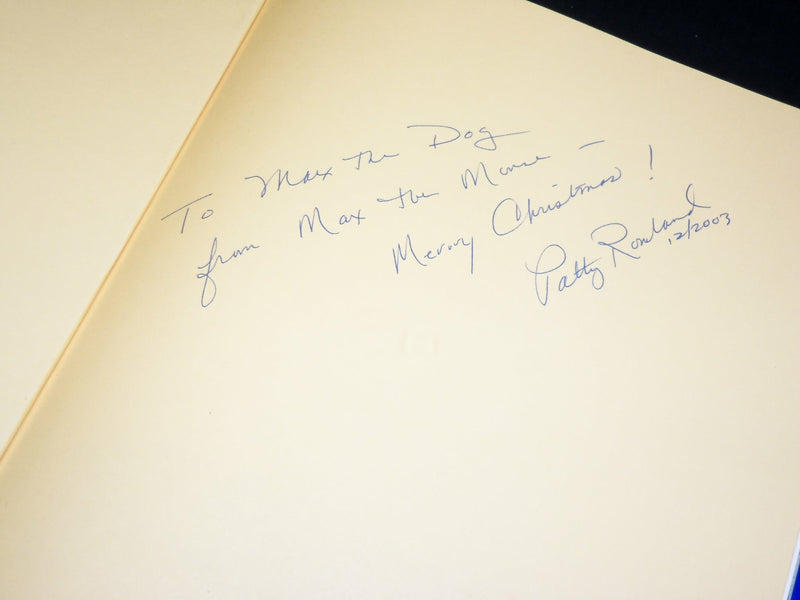 To Max the Dog
from Max the Mouse –
Merry Christmas!
Patty Rowland
12/2003